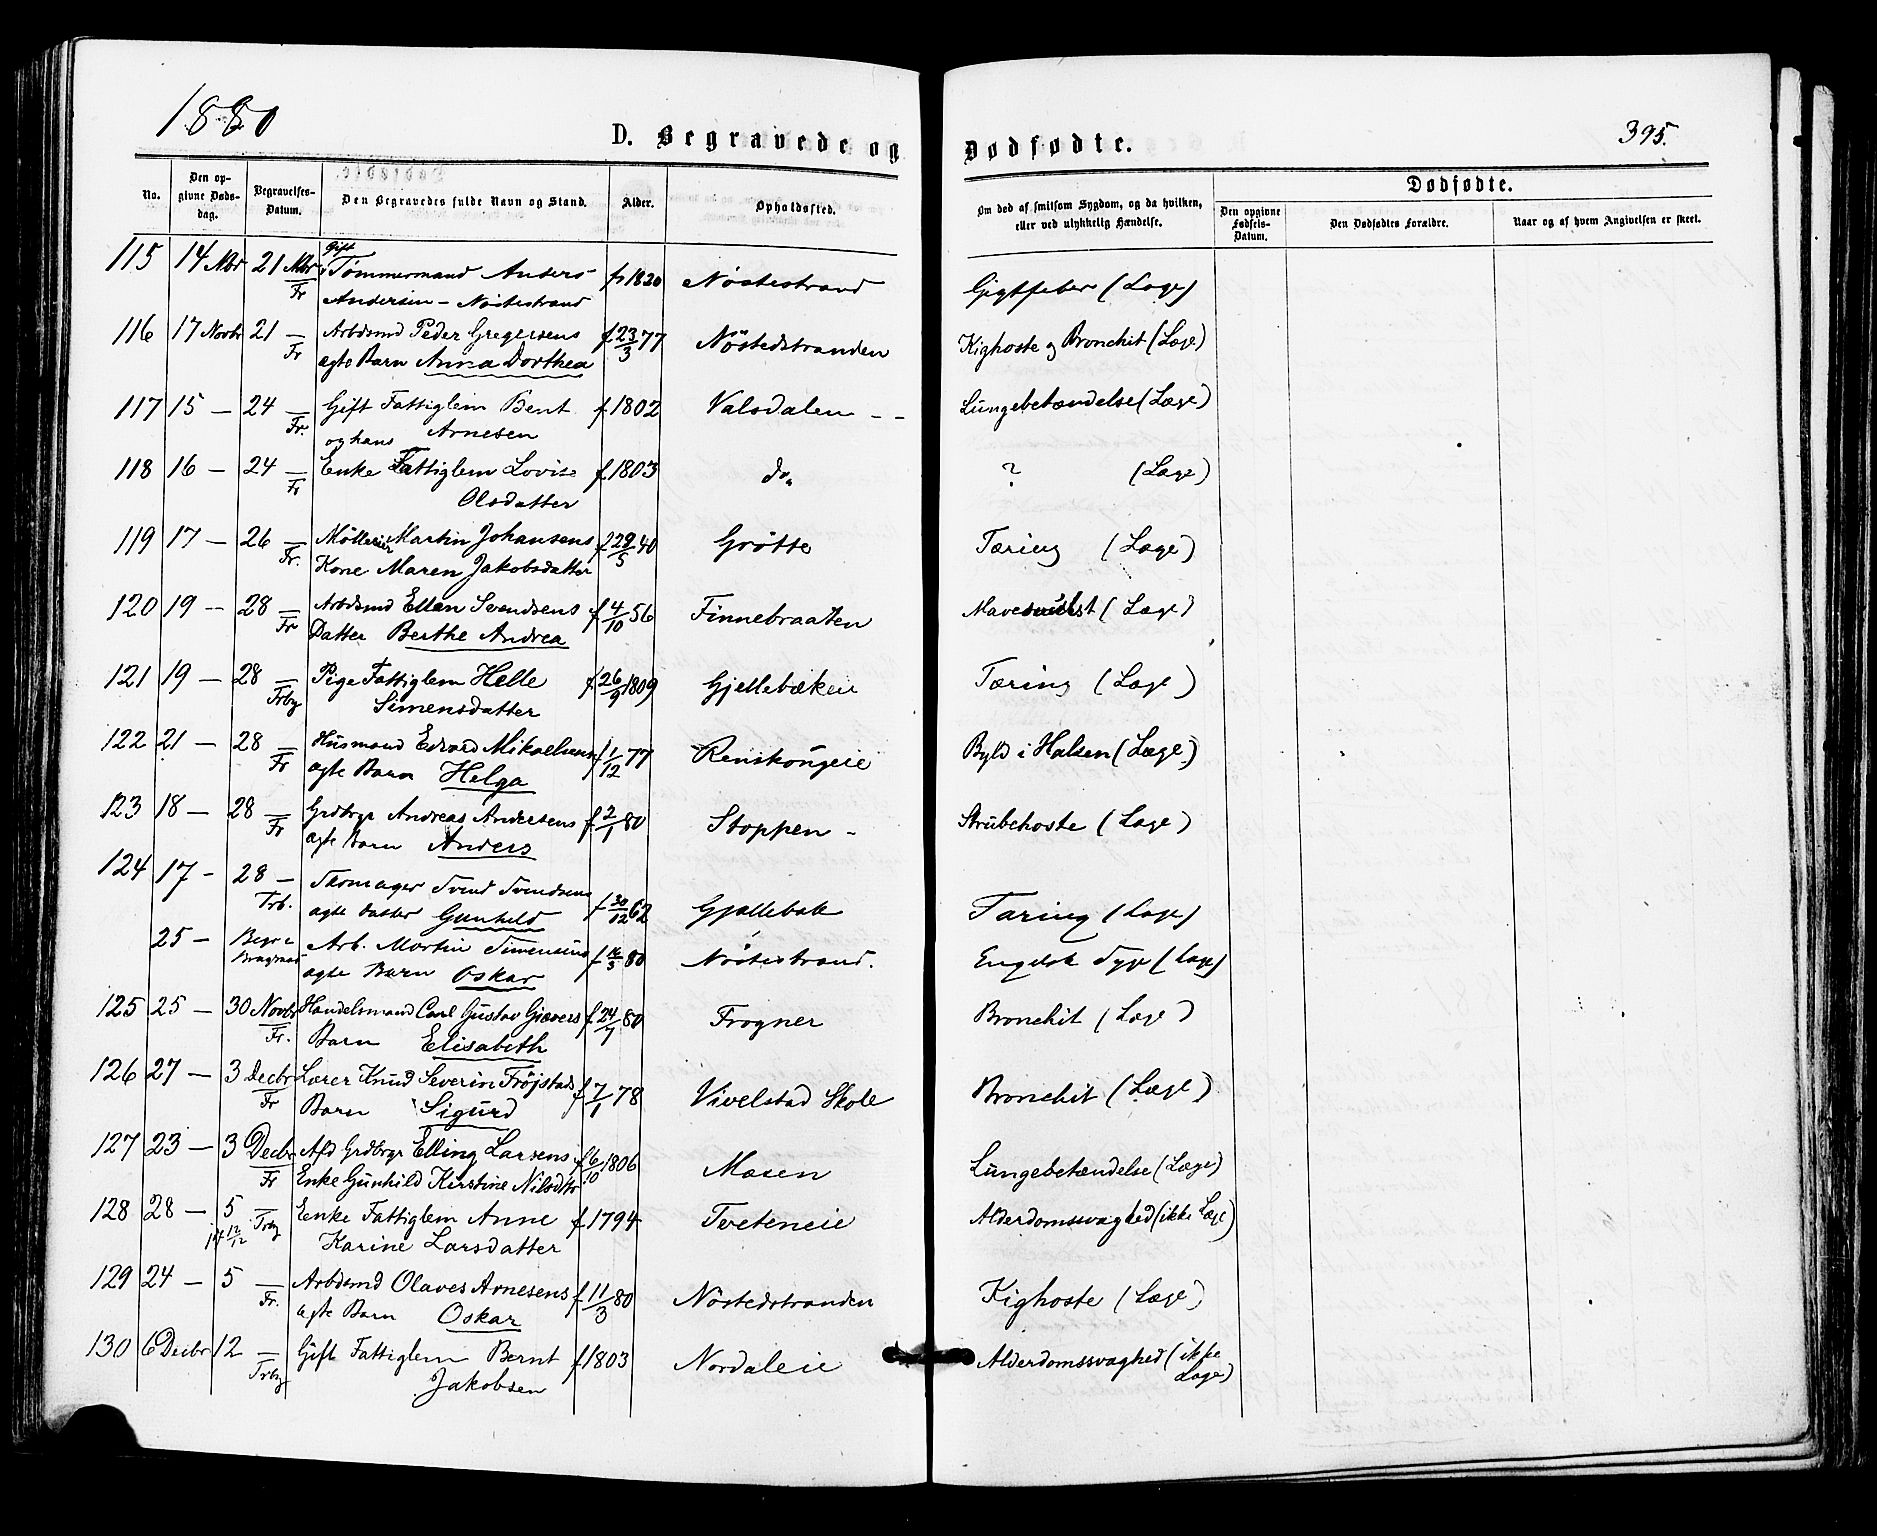 1880
D. Begravede og Dødfødte.
395.
No. Den opgivne Dødsdag. Begravelses-Datum. Den Begravedes fulde Navn og Stand. Alder. Opholdssted. Om død af smitsom Sygdom, og da hvilken, eller ved ulykkelig Hændelse. Dødfødte. Den opgivne Fødsels-Datum. Den Dødfødtes Forældre. Naar og af hvem Angivelsen er skeet.
115 14 Nbr 21 Nbr Fr Gift Tømmermand Anders f 1820 Nöstestrand Gigtfeber (Læge)
Andersen - Nöstestrand
116 17 Novbr 21 — Fr Arbdsmd Peder Gregersens f 23/3 77 Nöstedstranden Kighoste og Bronchit (Læge)
ægte Barn Anna Dorthea
117 15 — 24 — Fr. Gift Fattiglem Bent f. 1802 Valsdalen - - Lungebetændelse (Læge)
og hans Arnesen
118 16 — 24 — Fr Enke Fattiglem Lovise f. 1803 do. ? (Læge)
Olsdatter
119 17 — 26 — Fr. Martin Johansens f 29/5 40 Grötte Tæring (Læge)
Kone Maren Jakobsdatter
120 19 — 28 — Fr Arbdsmd Ellen Svendsens f 4/10 56 Finnebraaten (Læge)
Datter Berthe Andrea
121 19 — 28 — Frby Pige Fattiglem Helle f 26/9 1809 Gjellebækken Tæring (Læge)
Simensdatter
122 21 — 28 — Fr Husmand Edvard Mikaelsens f 1/12 77 Renskougeie Byld i Halsen (Læge)
ægte Barn Helga
123 18 — 28 — Fr Grdbrgr Andreas Andersens f 2/1 80 Stoppen - Strubehoste (Læge)
ægte Barn Anders
124 17 - 28 — Frb. Skomager Svend Svendsens f 30/12 62 Gjellebæk Tæring (Læge)
ægte Datter Gunhild
25 — Begr i Bragnæs Arb. Martin Simensens f 16/3 80 Nöstestrand. Engelsk Syge (Læge)
ægte Barn Oskar
125 25 — 30 Novbr Fr. Handelsmand Carl Gustav Gjævers f 24/7 80 Frogner Bronchit (Læge)
Barn Elisabeth
126 27 — 3 Decbr Fr Lærer Knud Severin Fröjstads f 7/1 78 Vivelstad Skole Bronchit (Læge)
Barn Sigurd
127 23 — 3 Decbr Fr Afd Grdbrgr Elling Larsens f 6/10 1806 Mosen Lungebetændelse (Læge)
Enke Gunhild Kirstine Nilsdtr
128 28 — 5 — Frby Enke Fattiglem Anne f. 1794 Tveteneie Alderdomssvaghed (ikke Læge)
Karine Larsdatter
129 24 — 5 — Fr. Arbdsmd Olaves Arnesens f 11/3 80 Nöstedstranden Kighoste (Læge)
ægte Barn Oskar
130 6 Decbr 12 — Frby Gift Fattiglem Bernt f 1803 Nordaleie Alderdomssvaghed (ikke
Jakobsen Læge)